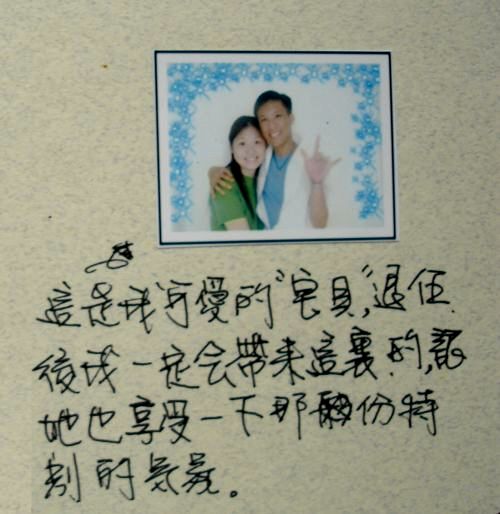 這是我可愛的"宝貝",退伍
後我一定会帶来這裏的,讓
她也享受一下那份特
別的気氛。